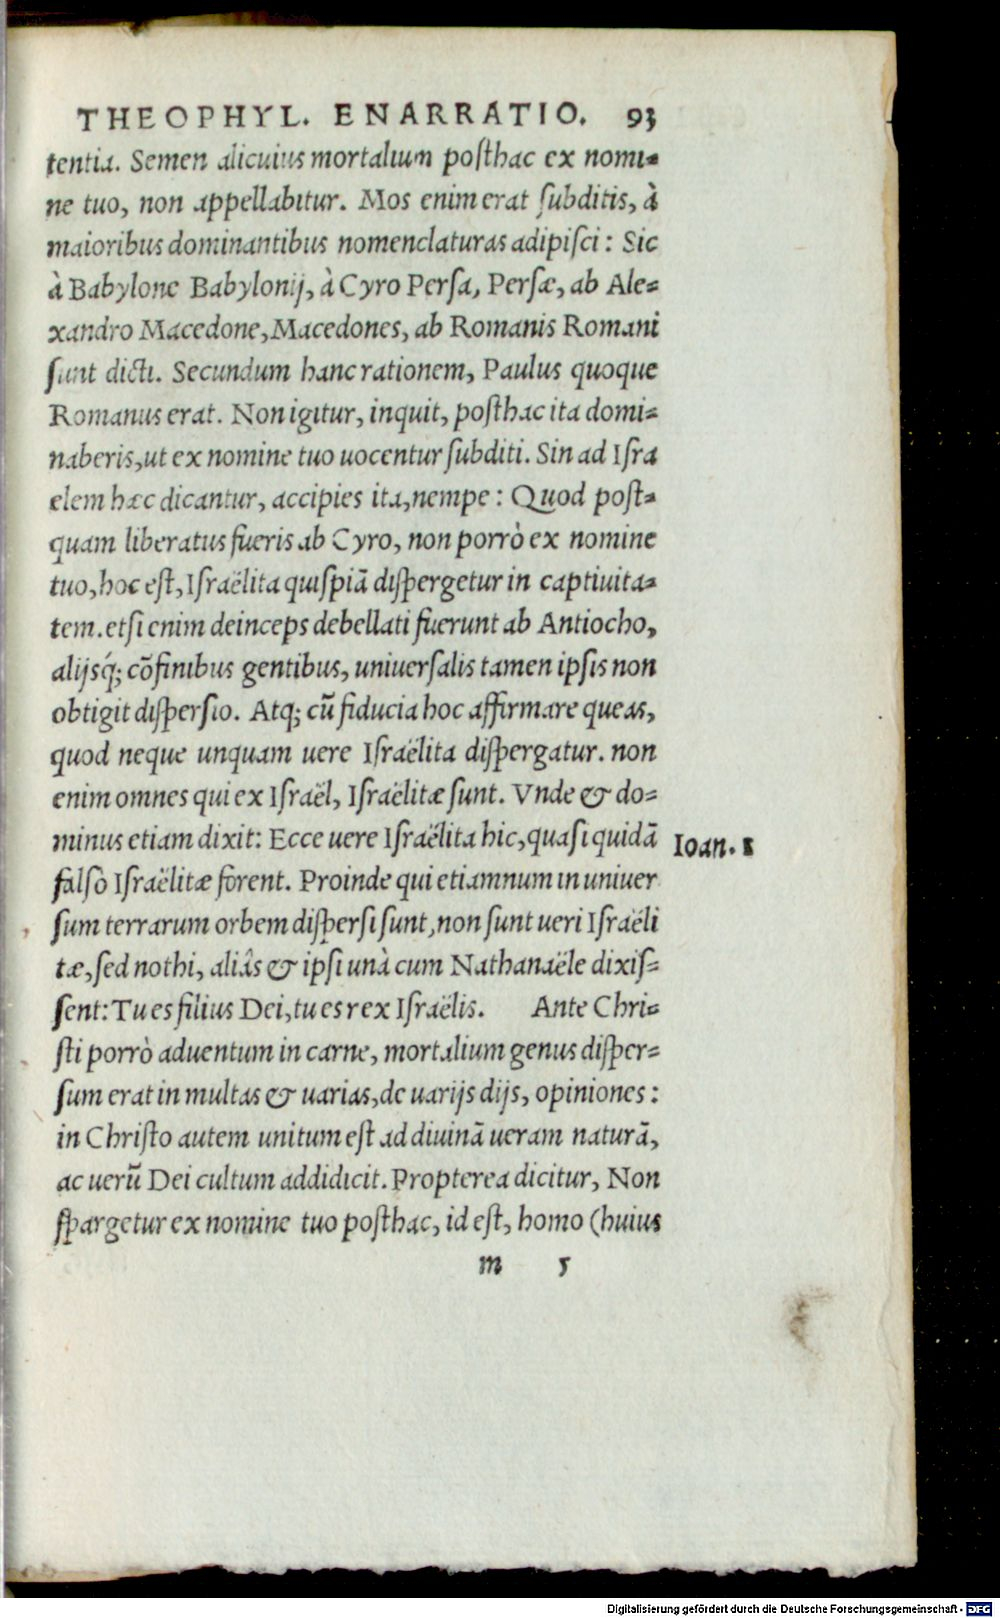 THEOPHYL. ENARRATIO. 93
tentia. Semen alicuius mortalium posthac ex nomi=
ne tuo, non appellabitur. Mos enim erat subditis, à
maioribus dominantibus nomenclaturas adipisci: Sic
à Babylone Babylonij, à Cyro Persa, Persæ, ab Ale=
xandro Macedone, Macedones, ab Romanis Romani
sunt dicti. Secundum hanc rationem, Paulus quoque
Romanus erat. Non igitur, inquit, posthac ita domi=
naberis, ut ex nomine tuo uocentur subditi. Sin ad Isra
elem hæc dicantur, accipies ita, nempe: Quod post=
quam liberatus fueris ab Cyro, non porrò ex nomine
tuo, hoc est, Israëlita quispiā dispergetur in captiuita=
tem. etsi enim deinceps debellati fuerunt ab Antiocho,
alijsq́; cōfinibus gentibus, uniuersalis tamen ipsis non
obtigit dispersio. Atq; cū fiducia hoc affirmare queas,
quod neque unquam uere Israëlita dispergatur. non
enim omnes qui ex Israël, Israëlitæ sunt. Vnde & do=
minus etiam dixit: Ecce uere Israëlita hic, quasi quidā
falsò Israëlitæ forent. Proinde qui etiamnum in uniuer
sum terrarum orbem dispersi sunt, non sunt ueri Israëli
tæ, sed nothi, aliâs & ipsi unà cum Nathanaële dixis=
sent: Tu es filius Dei, tu es rex Israëlis. Ante Chri=
sti porrò aduentum in carne, mortalium genus disper=
sum erat in multas & uarias, de uarijs dijs, opiniones:
in Christo autem unitum est ad diuinā ueram naturā,
ac uerū Dei cultum addidicit. Propterea dicitur, Non
spargetur ex nomine tuo posthac, id est, homo (huius
m 5
Ioan. 1
Digitalisierung gefördert durch die Deutsche Forschungsgemeinschaft - DFG